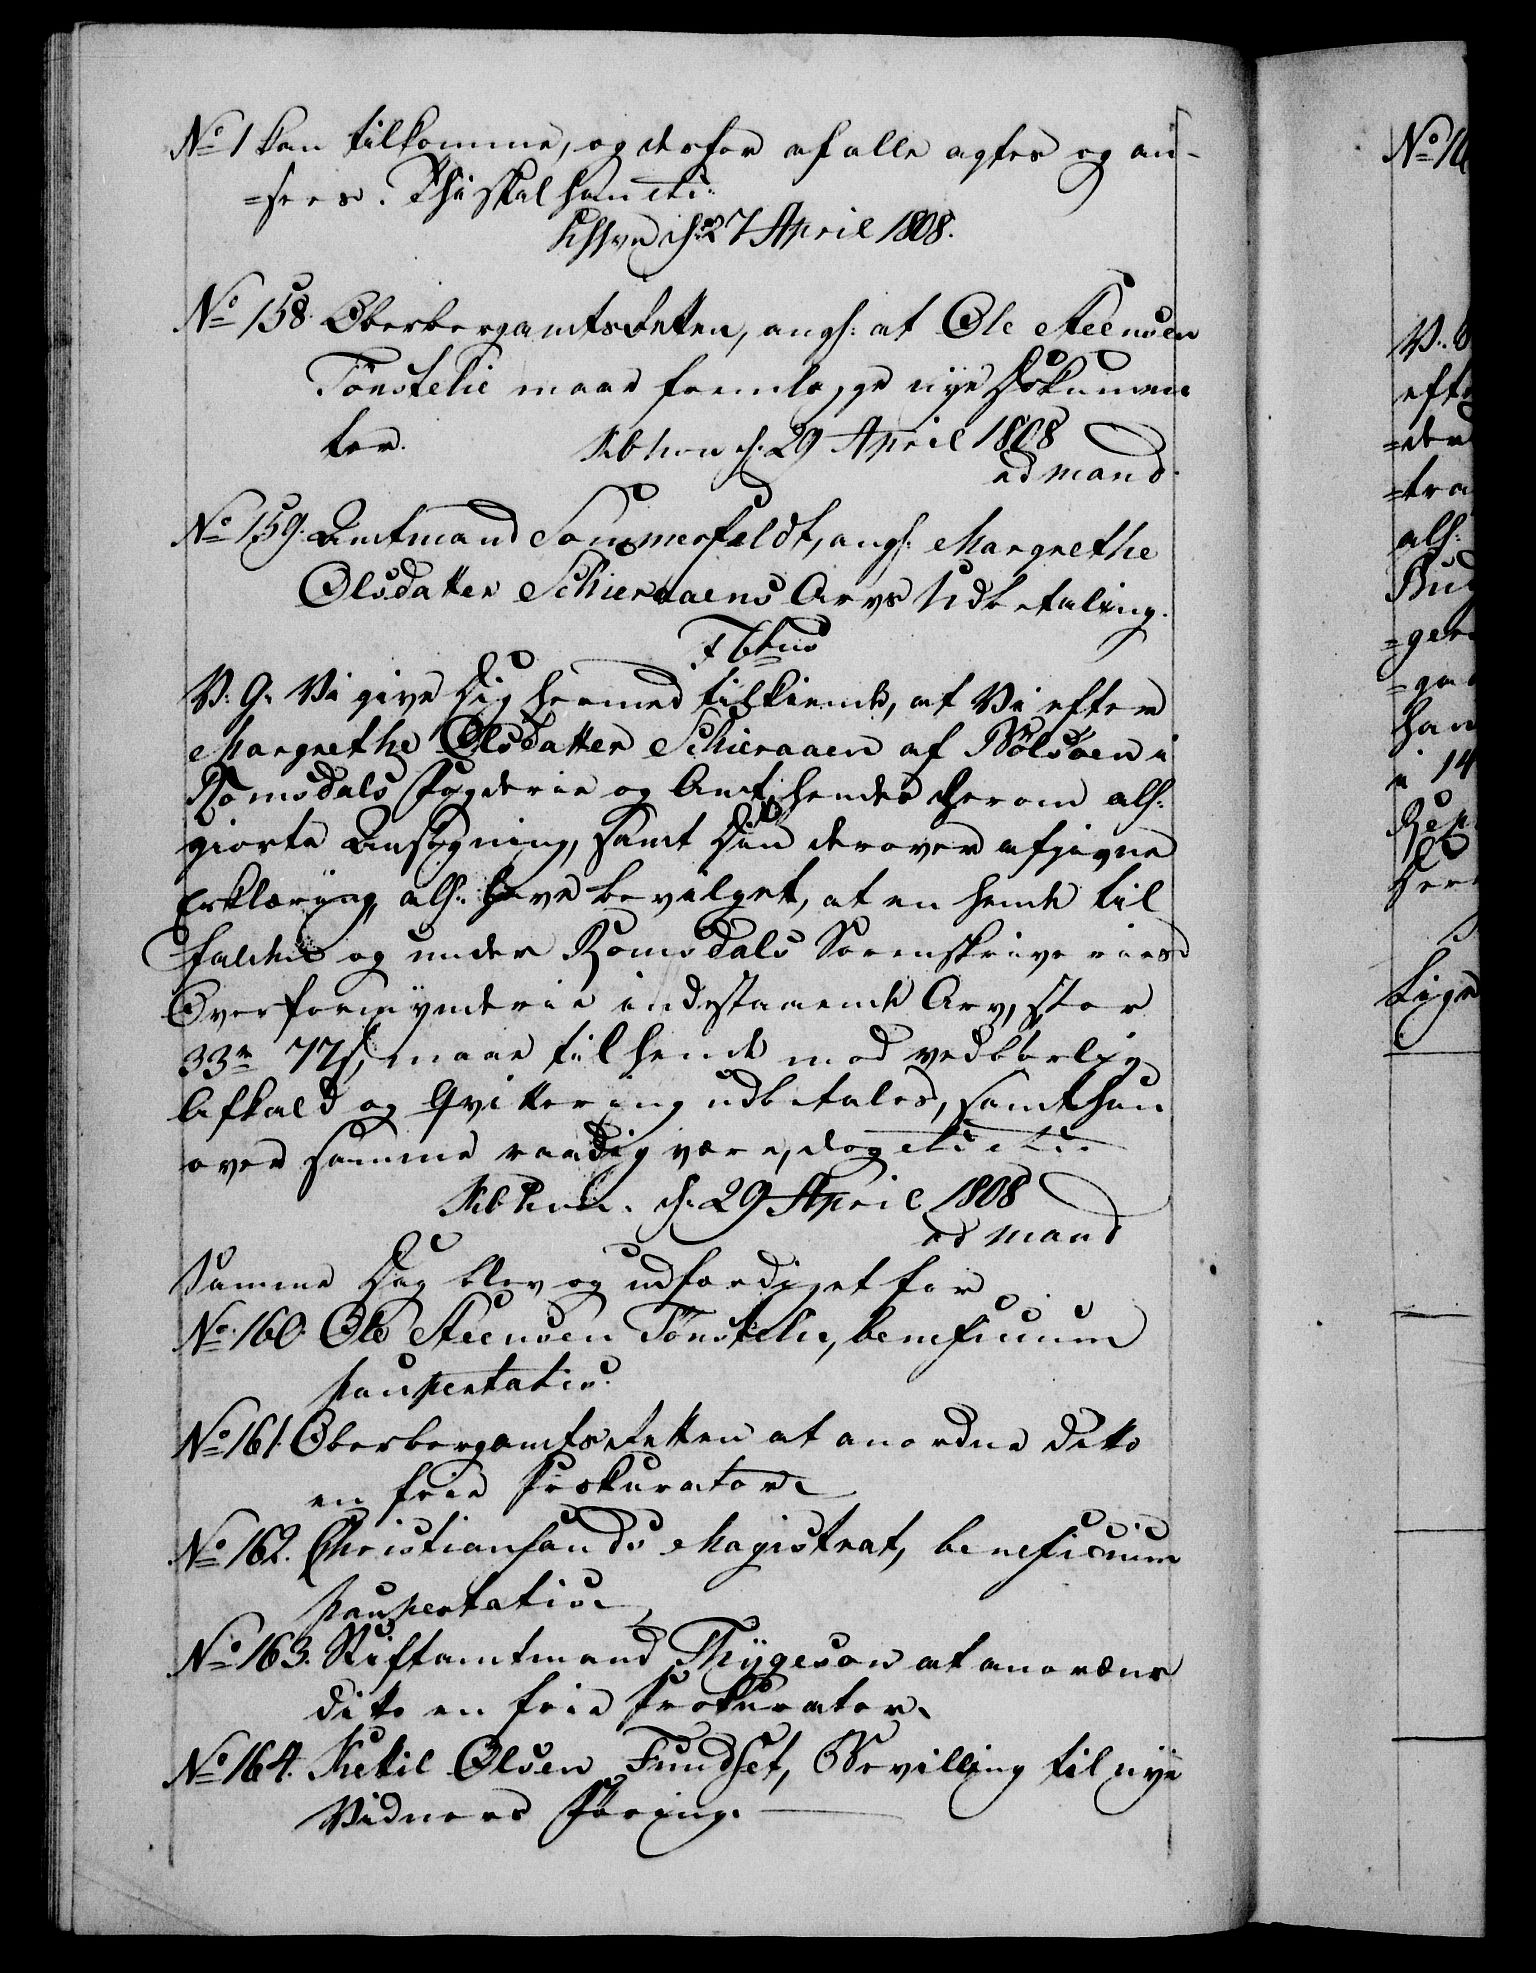 No 1 kan tilkomme, og derfor af alle agtes og an-
=sees. Thi skal han etc:
Kbhvn d: 27 April 1808.
No 158. Oberbergamtsretten, angl: at Ole Steensen
Tönstelie maae fremlægge nye Dokumen
ter. Kbhvn d. 29 April 1808
ad mand.
No 159. Amtmand Sommerfeldt, angl: Margrethe
Olsdatter Schieraaens Arvs Udbetaling.
V. G. Vi give Dig hermed tilkiende, at Vi efter
Margrethe Olsdatter Schieraaen af Bolsøen i
Romsdals Fogderie og Amt, hendes herom alh:
giorte Ansøgning, samt Din derover afgivne
Erklæring, alh: have bevilget, at en hende til
falden og under Romsdals Sorenskriveries
Overformynderie indestaaende Arv, stor
33 rd 77 s, maae til hende mod vedbørlig
Afkald og Qvittering udbetales, samt hun
over samme raadig være, dog etc: etc:
Kbhvn. d. 29 April 1808
ad mand
Samme Dag blev og udfærdiget for
No 160. Ole Steensen Tönstelie, beneficium
paupertatis.
No 161. Oberbergamtsretten at anordne ditto
en frie Prokurator.
No 162. Christiansands Magistrat, beneficium
paupertatis.
No 163. Stiftamtmand Thygeson at anordne
ditto en frie Prokurator.
No 164. Ketil Olsen Fundset, Bevilling til nye
Vidners Føring.
No 16
V. G.
efte
=der
=tra
alh:
Bud
=ger
=ga
han
i 14
Rep.
Lige